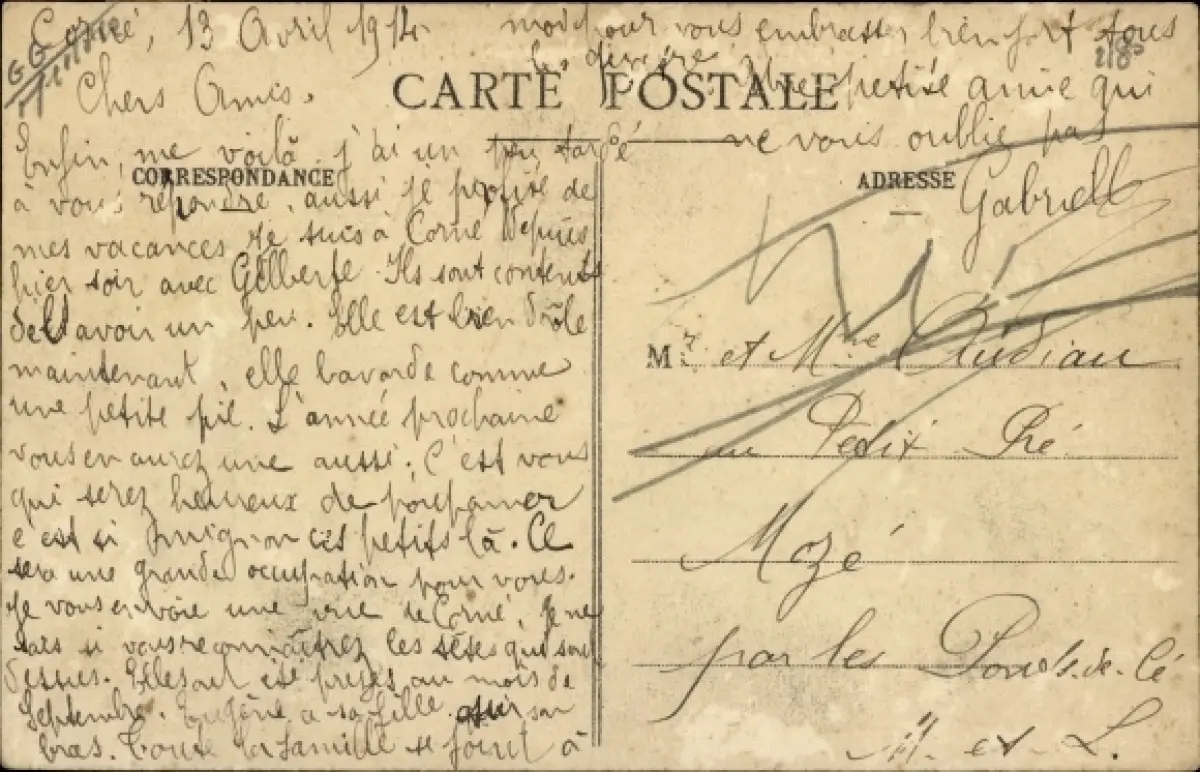 Corné, 13 Avril 1914
Chers Amis.
CARTE POSTALE
CORRESPONDANCE
Enfin, me voilà, j'ai un peu tardé
à vous répondre, aussi je profite de
mes vacances. Je suis à Corné depuis
hier soir avec Gilberte. Ils sont contents
de l'avoir un peu. Elle est bien drôle
maintenant, elle bavarde comme
une petite pie. L'année prochaine
vous en aurez une aussi. C'est vous
qui serez heureux de
c est si mignon ces petits là. Ce
sera une grande occupation pour vous.
Je vous envoie une vue de Corné, Je ne
sais si vous reconnaîtrez les têtes qui sont
dessus. Elles ont été prises au mois de
Septembre. Eugène a sa fille sur son
bras. Toute la famille se joint à
moi pour vous embrasser bien fort tous
les
petite amie qui
ne vous oublie pas
Gabriell
218
ADRESSE
Mr et Mme
au Petit Pré
Mozé
par les Ponts-de-Cé
M. et L.